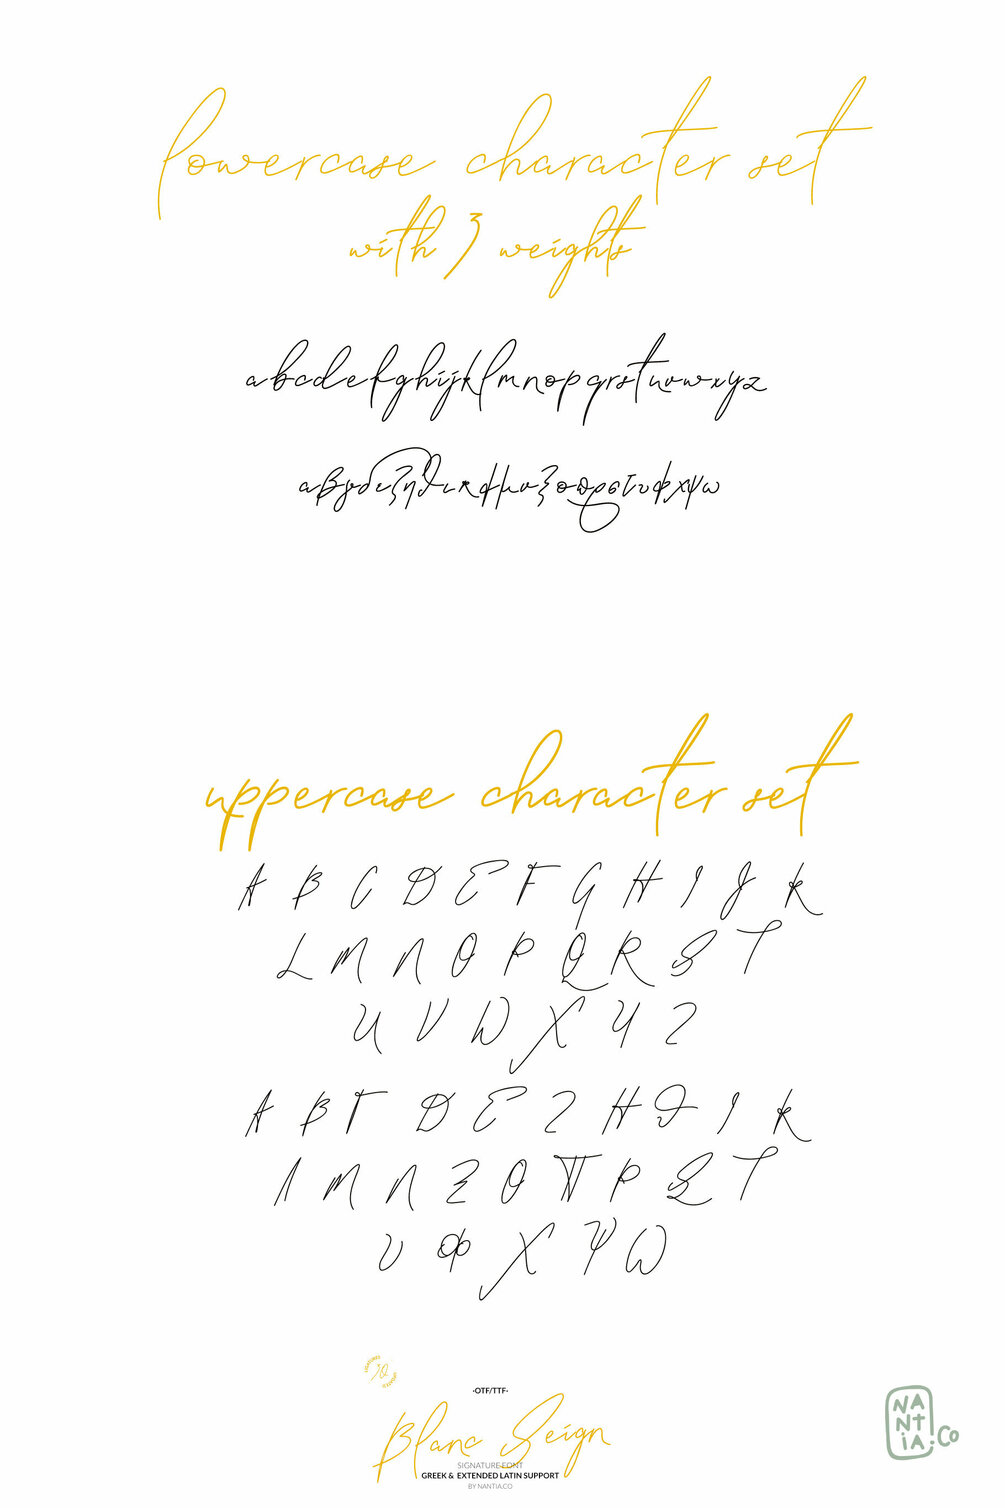 lowercase character set
with 3 weights
abcdefghijklmnopqrstuvwxyz
αβγδεζηθικλμνξοπρστυφχψω
uppercase character set
A B C D E F G H I J K
L M N O P Q R S T
U V W X Y Z
Α Β Γ Δ Ε Ζ Η Θ Ι Κ
Λ Μ Ν Ξ Ο Π Ρ Σ Τ
Υ Φ Χ Ψ Ω
·OTF/TTF·
Blanc Seign
SIGNATURE FONT
GREEK & EXTENDED LATIN SUPPORT
BY NANTIA.CO
NANTiA.Co